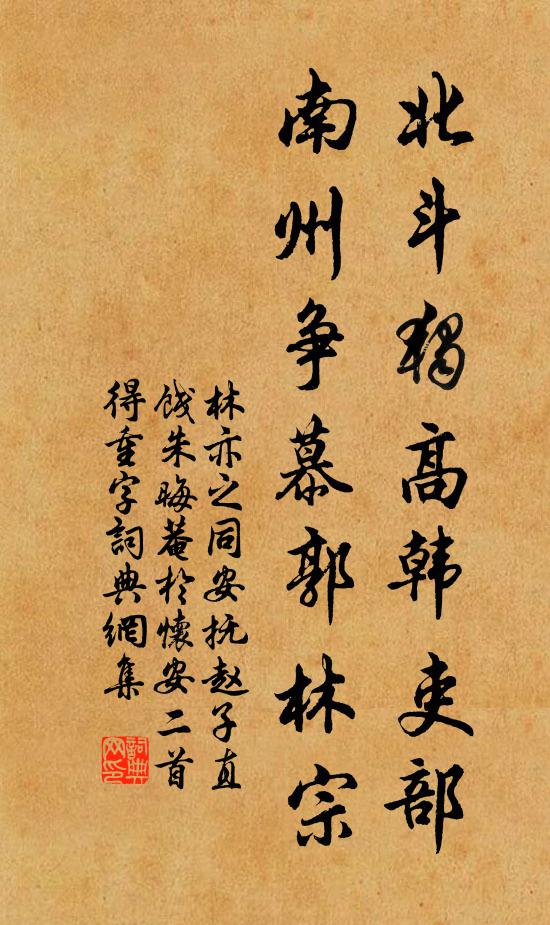 北斗獨高韩吏部
南州争慕郭林宗
林亦之同安抚赵子直
饯朱晦菴於懷安二首
得重字詞典網集
詞典网印